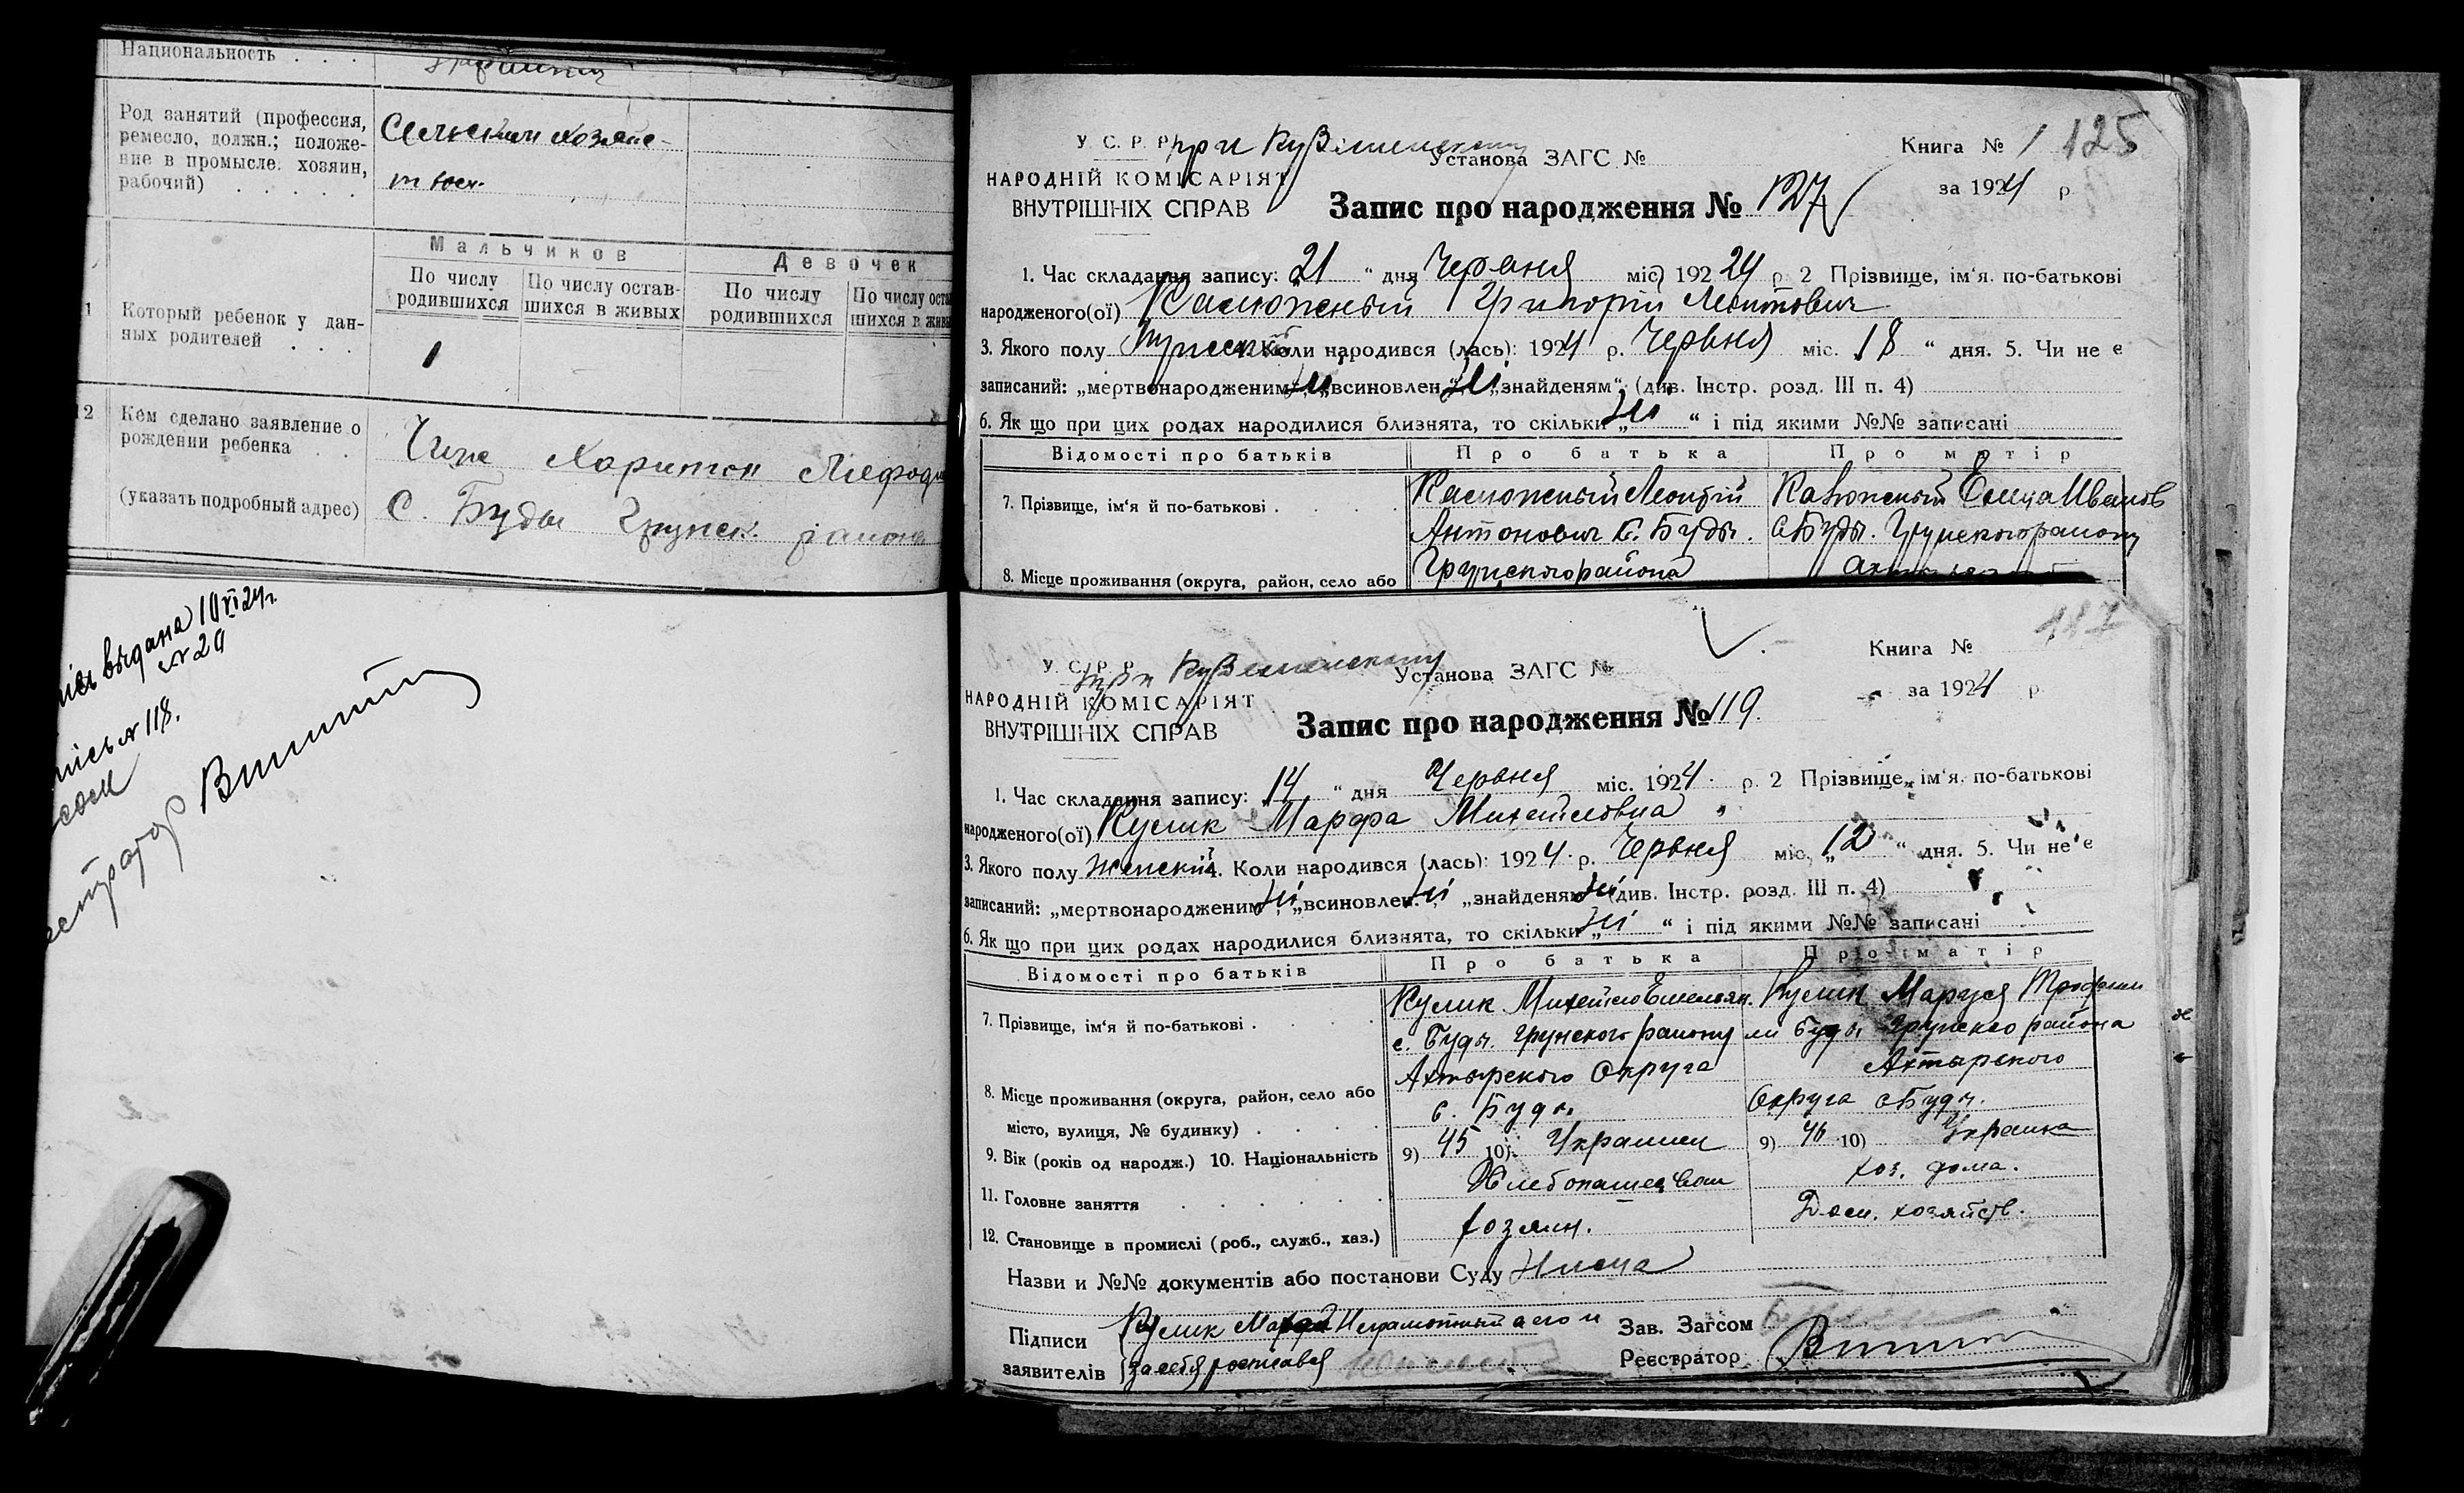 Национальность . . .
Род занятий (профессия,
ремесло, должн.; положе-
ние в промысле: хозяин,
рабочий) . . . . .
Сельским хозяйс-
твом
Мальчиков
Девочек
По числу
родившихся
По числу остав-
шихся в живых
По числу
родившихся
По числу оста
шихся в живы
1
Который ребенок у дан-
ных родителей . . .
1
12
Кем сделано заявление о
рождении ребенка . .
(указать подробный адрес)
Харитон Мефоди
С. Буды Грунск. района
выдана 10 VI 24 г.
№ 29
№ 118.
У. С. Р. Р.
при Куземинскому
Установа ЗАГС №
Книга № 1
125
НАРОДНІЙ КОМІСАРІЯТ
ВНУТРІШНІХ СПРАВ
за 1924 р
Запис про народження № 127
1. Час складання запису: 21 “ дня Червня міс. 1924 р. 2 Прізвище, ім‘я. по-батькові
народженого(ої) Калюжный Григорій Леонтович
3. Якого полу Мужской 4. Коли народився (лась): 1924 р. Червня міс. 18 “ дня. 5. Чи не є
записаний: „мертвонародженим“, „всиновлен.“, „знайденям“ (див. Інстр. розд. III п. 4)
6. Як що при цих родах народилися близнята, то скільки „ Ні “ і під якими №№ записані
Відомості про батьків
Про батька
Про матір
7. Прізвище, ім‘я й по-батькові . . . .
Калюжный Леонтій
Антонович С. Буды.
Грунского района
Калюжный Елена Иванов
с Буды. Грунского району
8. Місце проживання (округа, район, село або
117
У. С. Р. Р.
при Куземинскому
Установа ЗАГС №
Книга №
НАРОДНІЙ КОМІСАРІЯТ
ВНУТРІШНІХ СПРАВ
за 1924 р
Запис про народження № 119.
1. Час складання запису: „14 “ дня Червня міс. 1924. р. 2 Прізвище, ім‘я. по-батькові
народженого(ої) Кулик Марфа Михейловна
3. Якого полу женский 4. Коли народився (лась): 1924. р. Червня міс. „12 “ дня. 5. Чи не є
записаний: „мертвонародженим“, ні „всиновлен.“, ні „знайденям“ ні (див. Інстр. розд. III п. 4)
6. Як що при цих родах народилися близнята, то скільки „ ні “ і під якими №№ записані
Відомості про батьків
Про батька
Про матір
7. Прізвище, ім‘я й по-батькові . . . .
Кулик Михейло Емельян.
с. Буды. Грунского району
Ахтырского Округа
с. Буды.
Кулик Маруся Трофими
Буды Грунского района
Ахтырского
Округа с Буды.
8. Місце проживання (округа, район, село або
місто, вулиця, № будинку) . . . .
9. Вік (років од народж.) 10. Національність
9) 45 10) Украинец
9) 46 10) Украинка
11. Головне заняття . . . .
Хлебопашество
хоз. дома.
12. Становище в промислі (роб., служб., хаз.)
хозяин.
Дом. хозяйств.
Назви и №№ документів або постанови Суду Нисца
Підписи
заявителів
Кулик Неграмотный а его и
за себя росписався
Зав. Загсом
Реєстратор